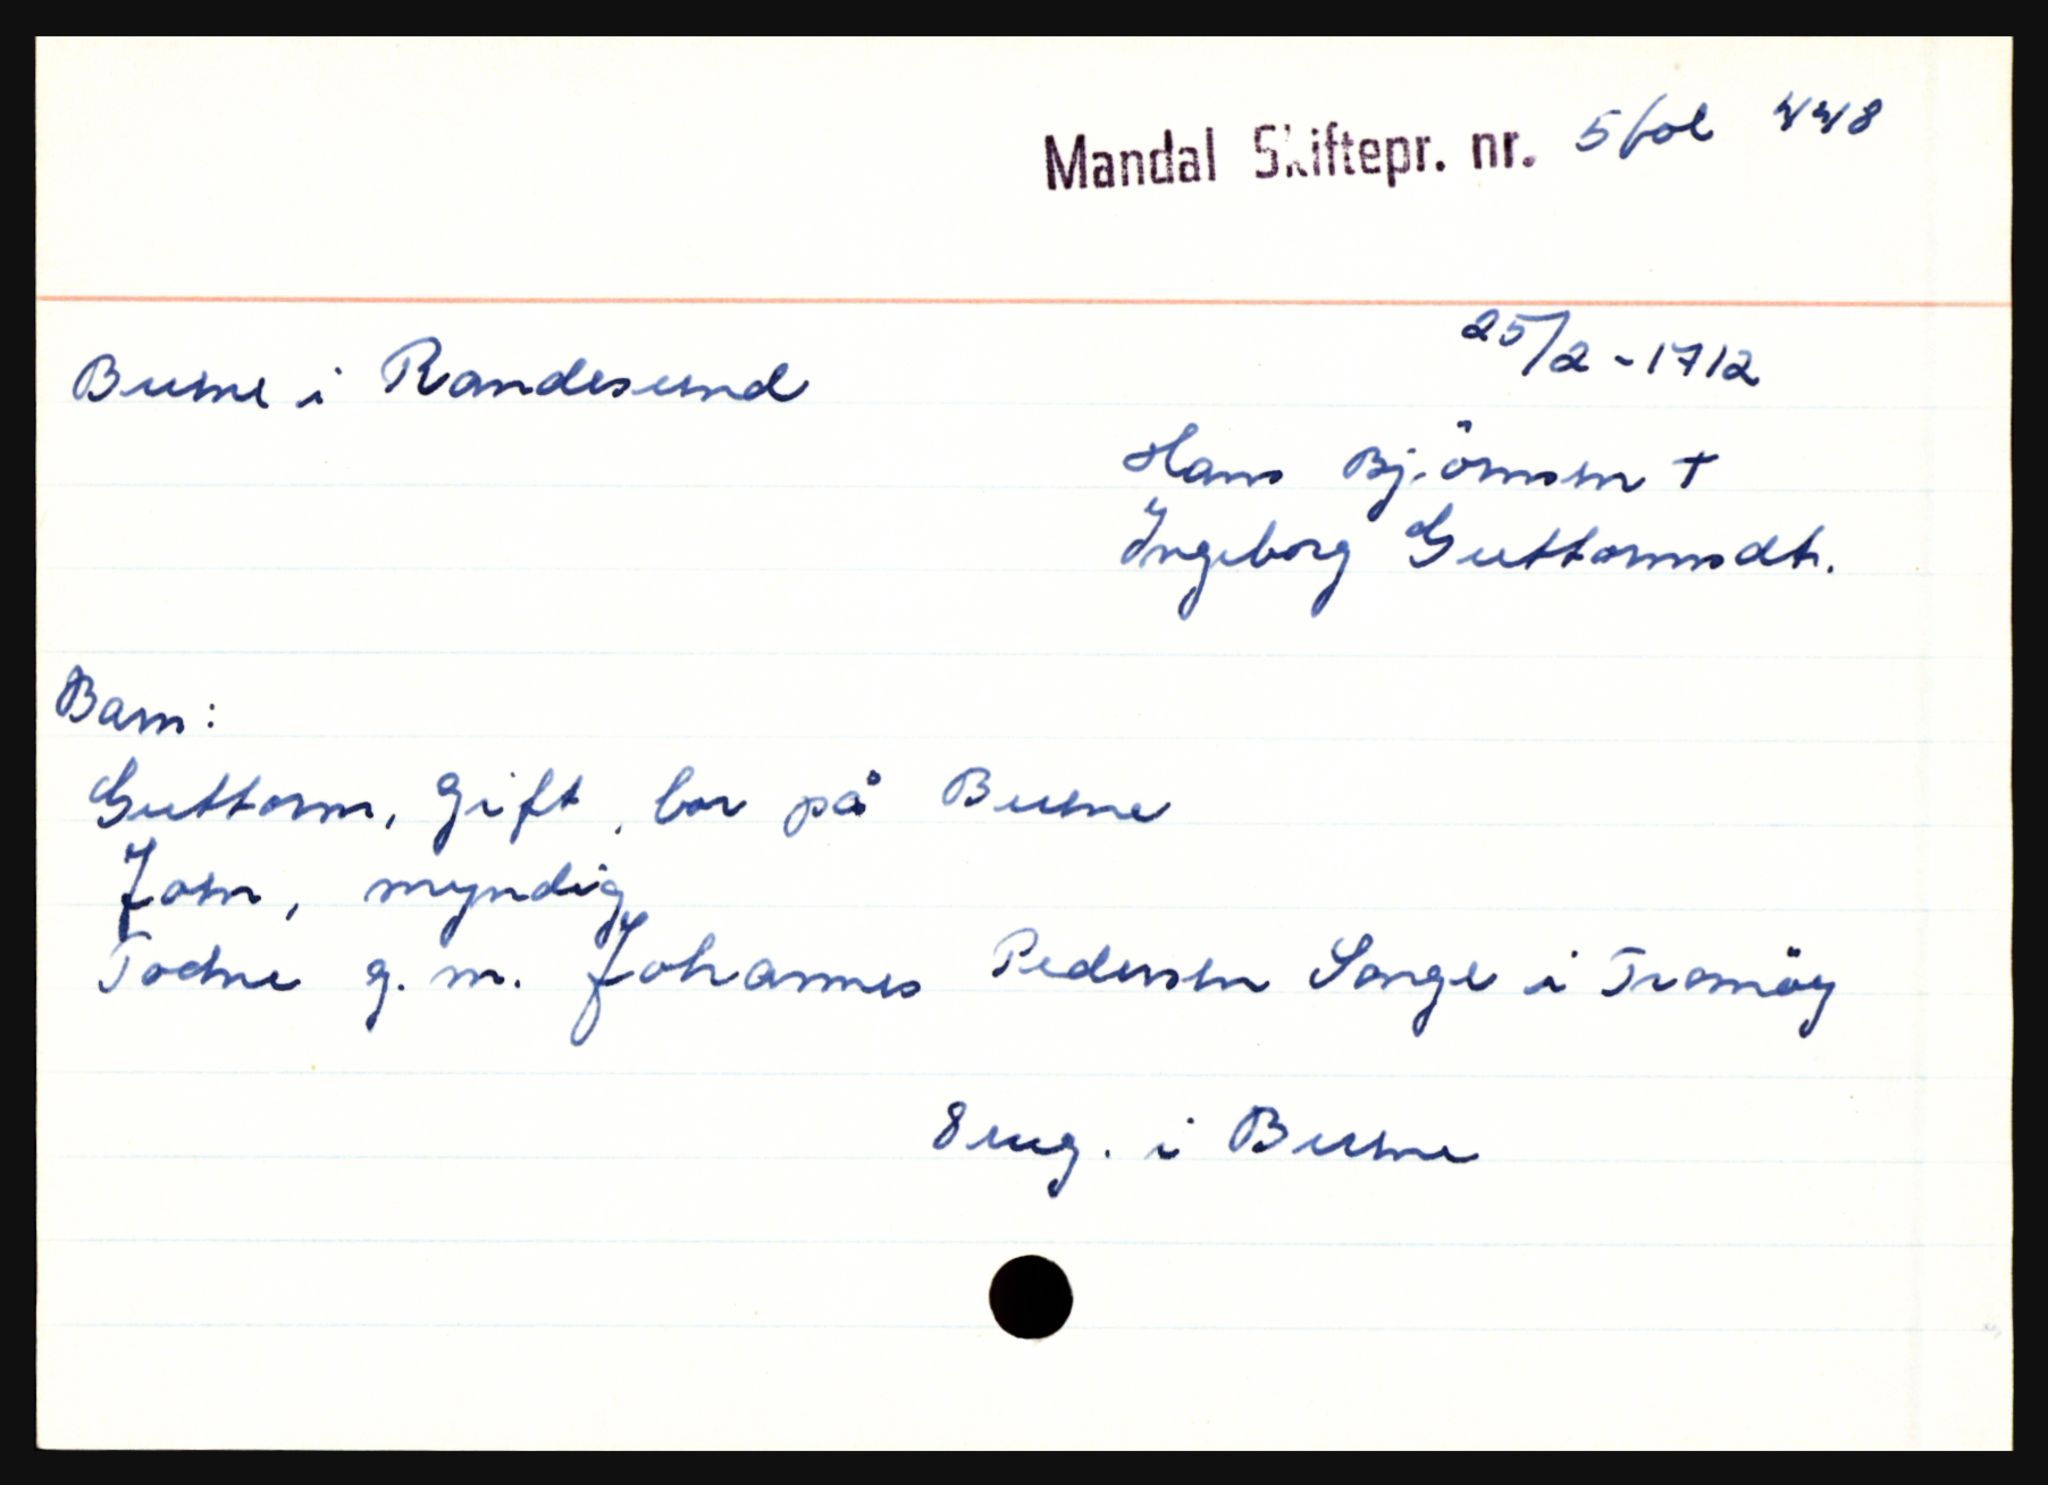 Mandal Skiftepr. nr. 5 fol 448
Buene i Randesund
25/2 - 1712
Hans Björnsen +
Ingeborg Guttormsdt.
Barn:
Guttorm, gift, bor på Buene
Jorn, myndig
Todne g. m. Johannes Pedersen Songe i Tromöy
8 eng. i Buene